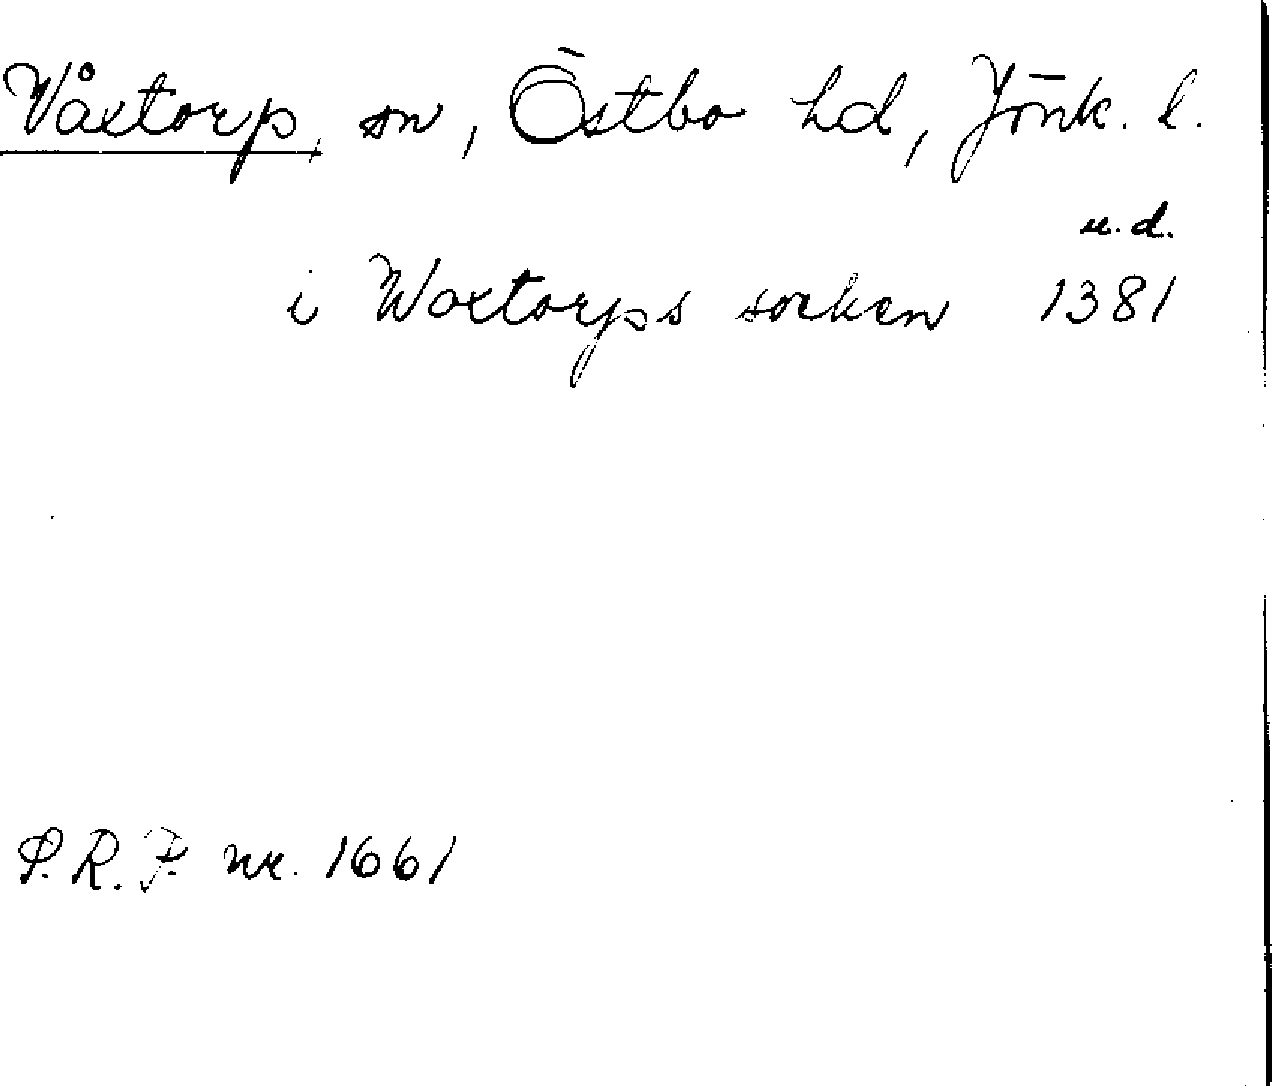 Våxtorp, sn, Östbo hd, Jönk. l.
u.d.
i Woxtorps socken 1381
P.R.F. nr. 1661